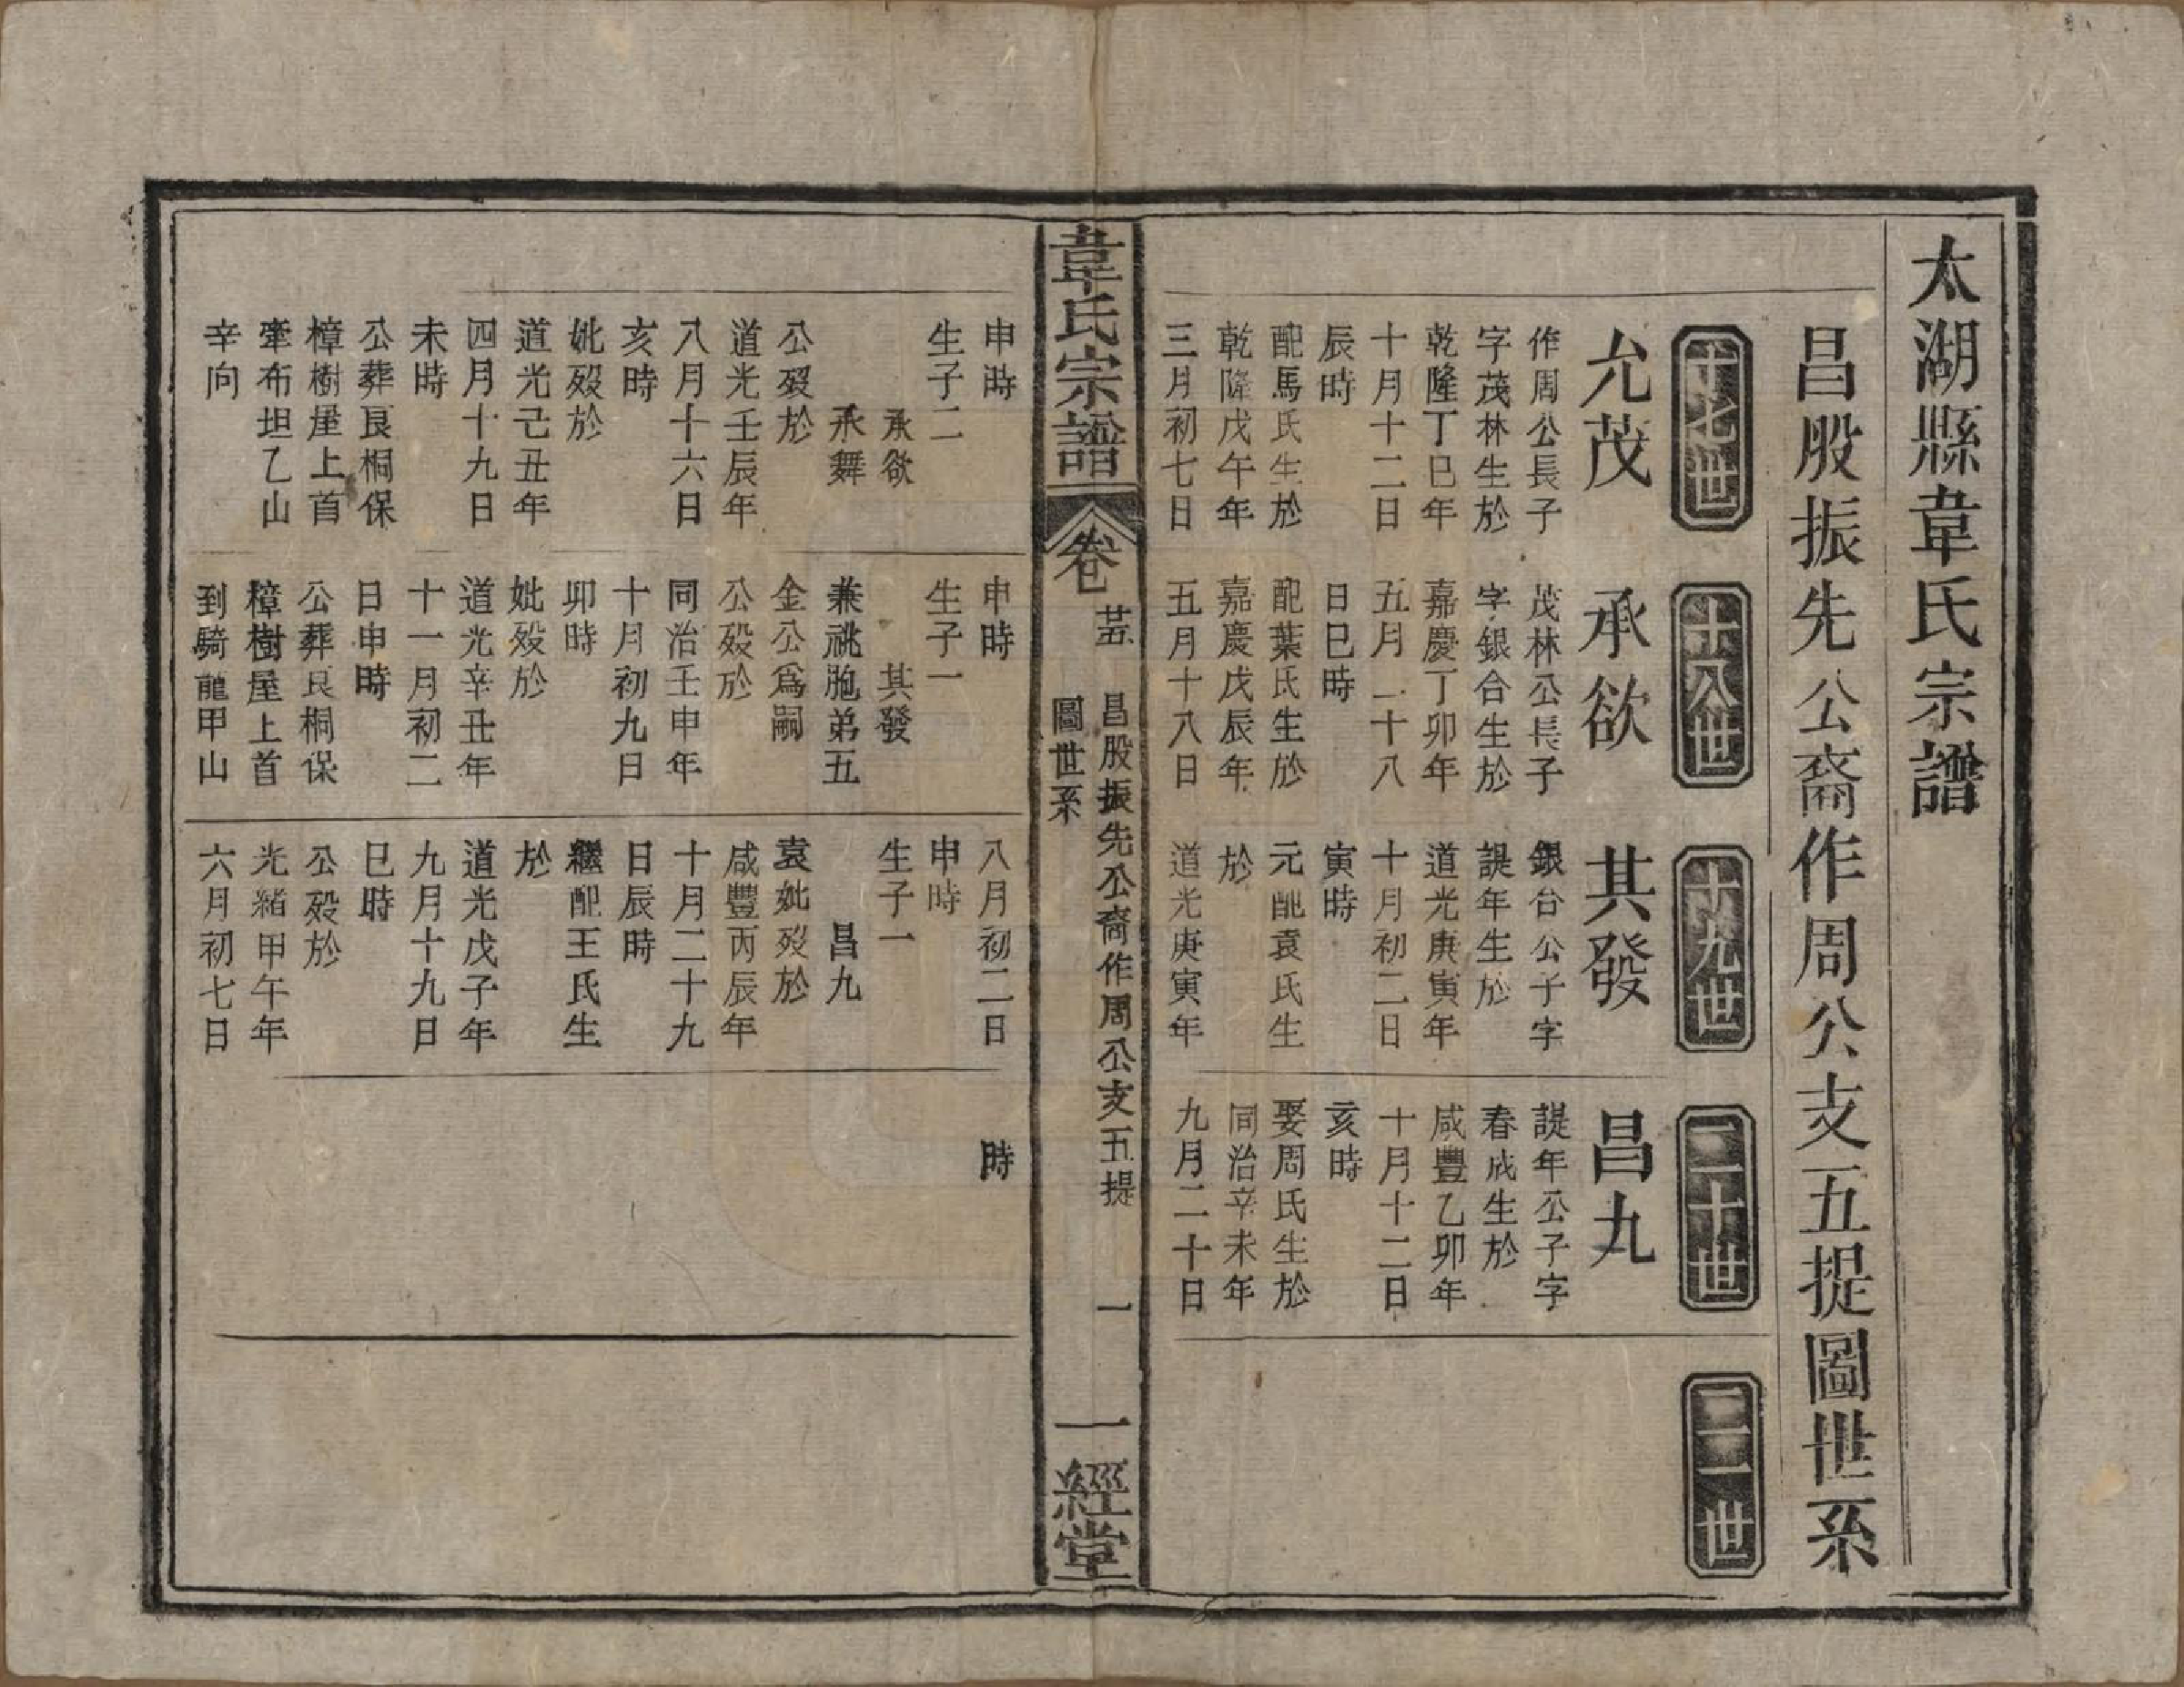 太湖縣韋氏宗譜
昌股振先公裔作周公支五提圖世系
十七世
允茂
作周公長子
字茂林生於
乾隆丁巳年
十月十二日
辰時
配馬氏生於
乾隆戊午年
三月初七日
十八世
承欲
茂林公長子
字銀合生於
嘉慶丁卯年
五月二十八
日巳時
配葉氏生於
嘉慶戊辰年
五月十八日
十九世
其發
銀台公子字
諟年生於
道光庚寅年
十月初二日
寅時
元配袁氏生
於
道光庚寅年
二十世
昌九
諟年公子字
春成生於
咸豐乙卯年
十月十二日
亥時
娶周氏生於
同治辛未年
九月二十日
二一世
韋氏宗譜
卷 廿五
昌股振先公裔作周公支五提
圖世系
一
一經堂
申時
生子二
承欲
承舞
公歿於
道光壬辰年
八月十六日
亥時
妣歿於
道光己丑年
四月十九日
未時
公葬艮桐保
樟樹屋上首
牽布坦乙山
辛向
申時
生子一
其發
兼祧胞弟五
金公為嗣
公歿於
同治壬申年
十月初九日
卯時
妣歿於
道光辛丑年
十一月初二
日申時
公葬艮桐保
樟樹屋上首
到騎龍甲山
八月初二日
申時
生子一
昌九
袁妣歿於
咸豐丙辰年
十月二十九
日辰時
繼配王氏生
於
道光戊子年
九月十九日
巳時
公歿於
光緒甲午年
六月初七日
時